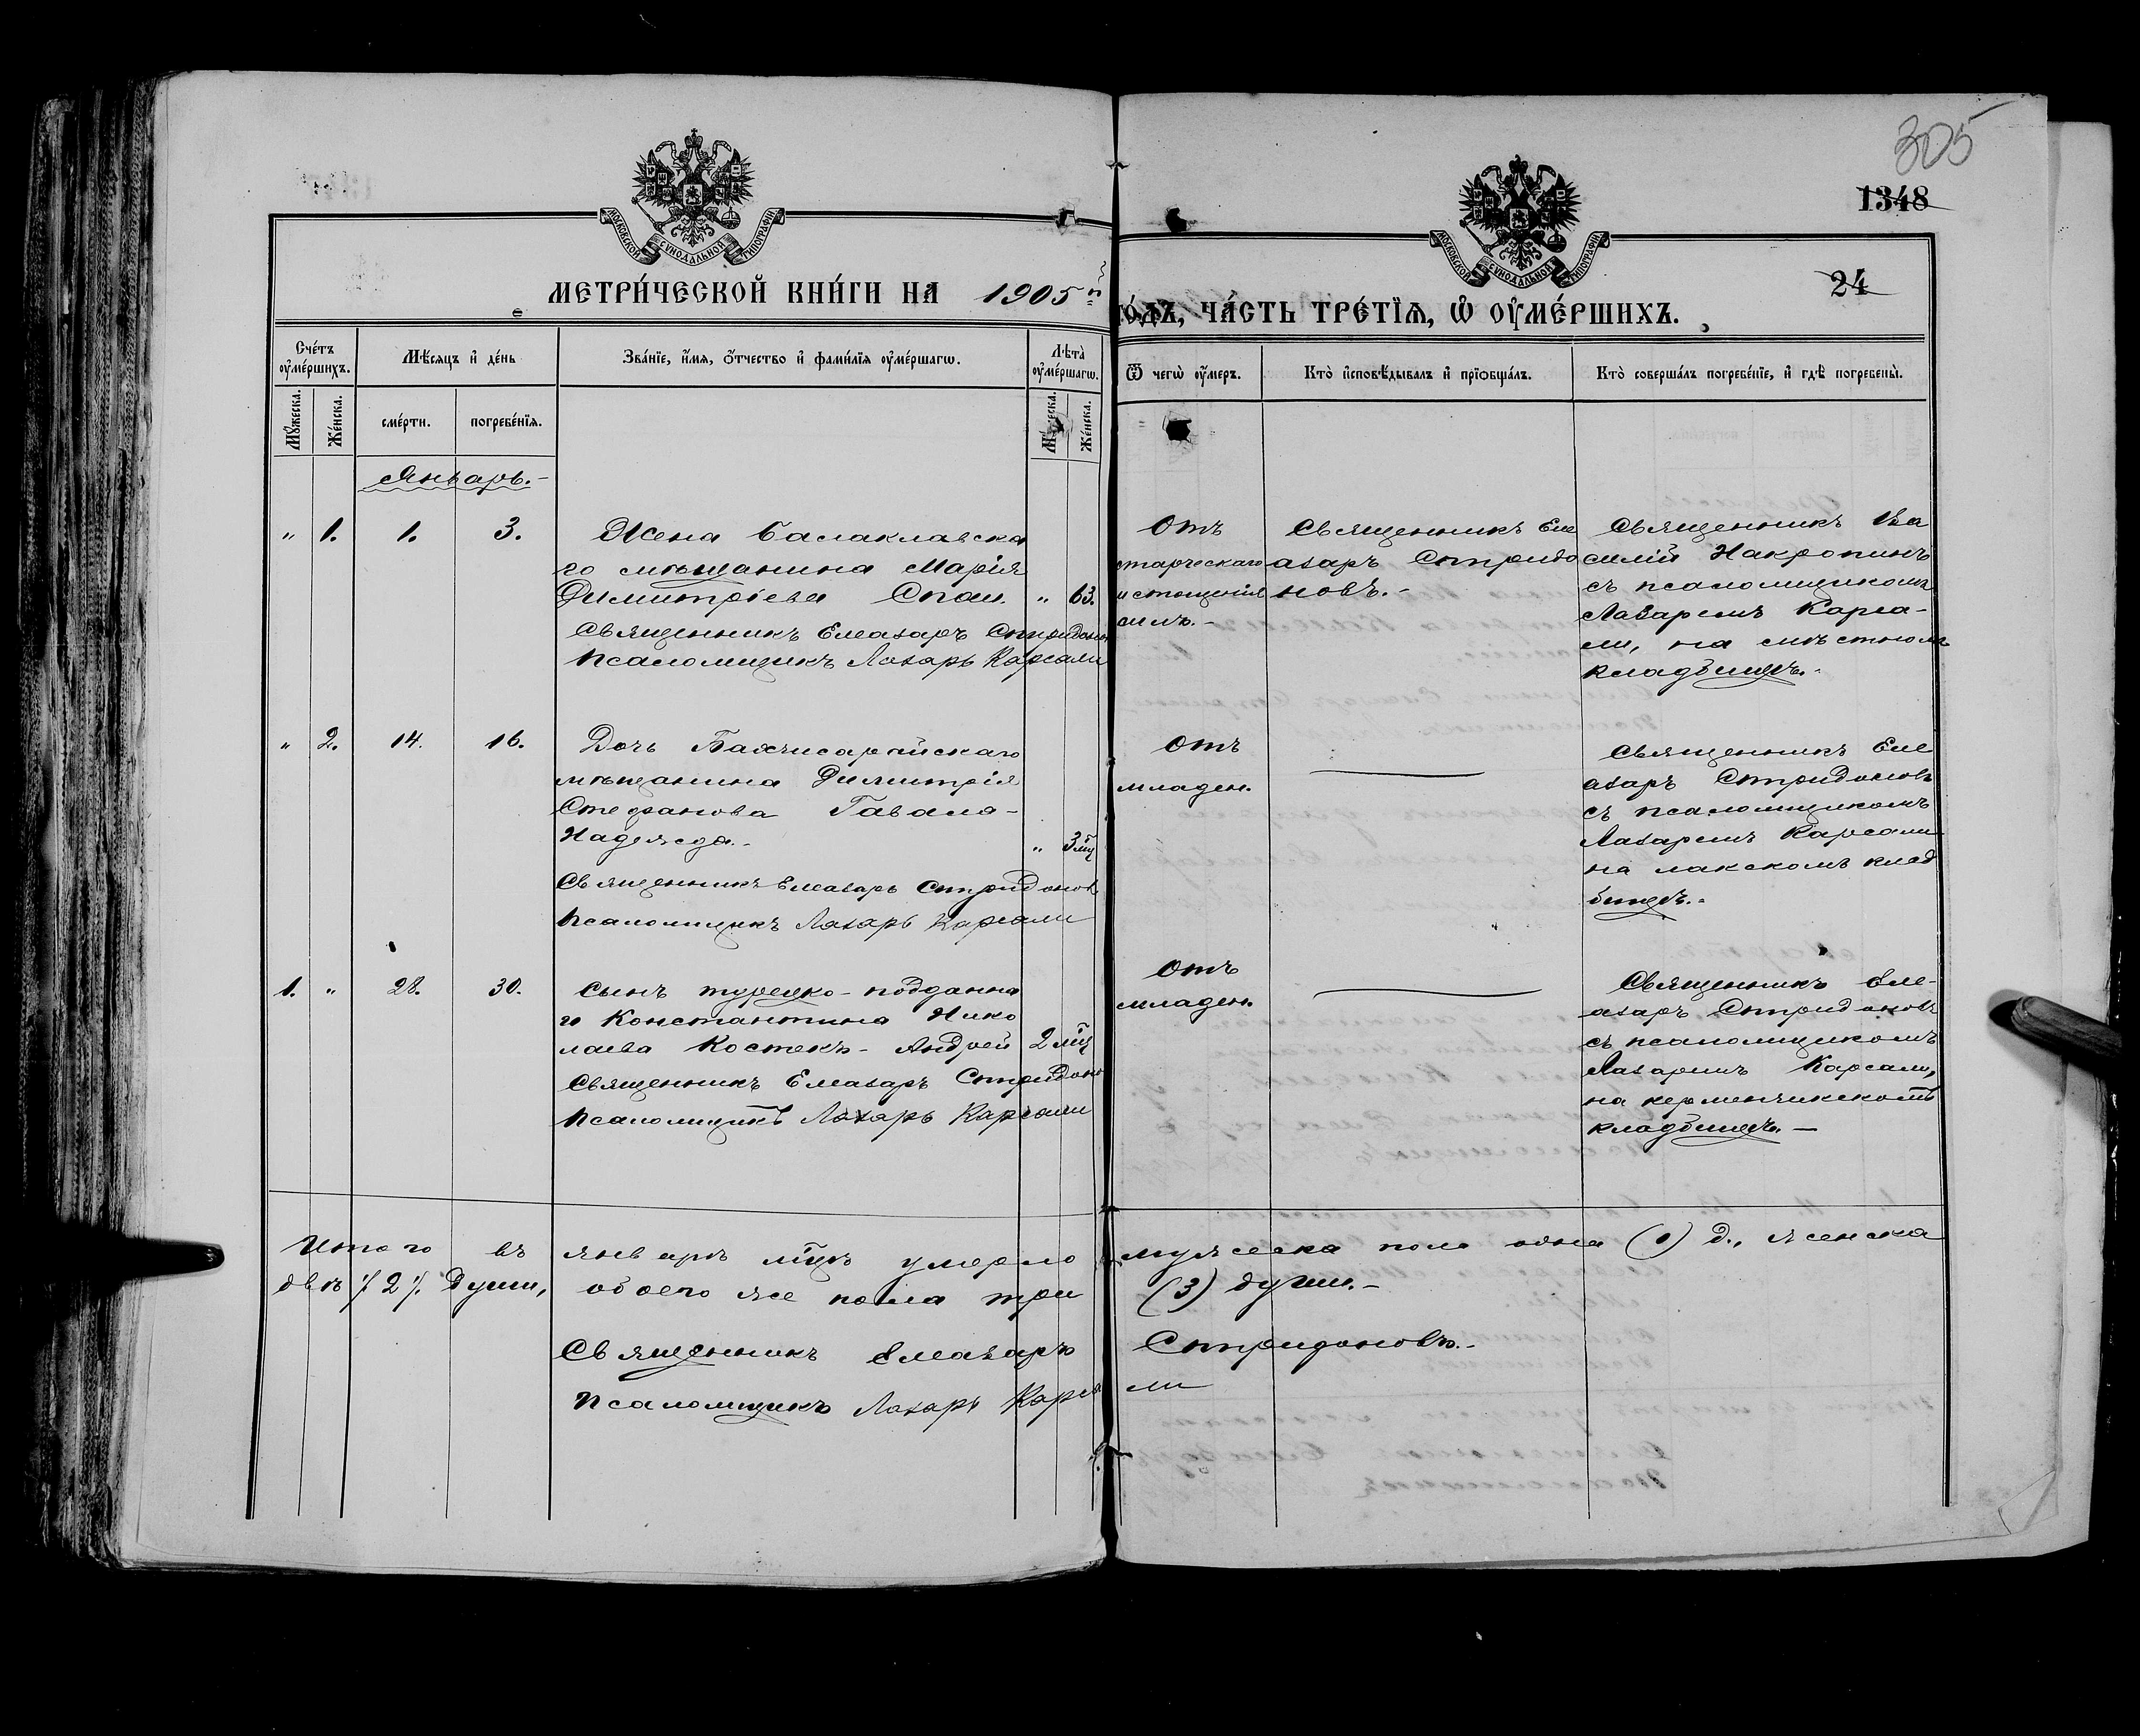 305
1348
24
МОСКОВСКОЙ СѴНОДАЛЬНОЙ ТИПОГРАФІИ
МОСКОВСКОЙ СѴНОДАЛЬНОЙ ТИПОГРАФІИ
МЕТРИ́ЧЕСКОЙ КНИ́ГИ НА 1905
го́дъ, ЧА́СТЬ ТРЕ́ТІѦ, Ѡ҆ ОУ҆МЕ́РШИХЪ.
Сче́тъ оу҆ме́ршихъ.
Мѹ́жеска.
Же́нска.
Мѣ́сѧцъ и҆ де́нь
сме́рти.
погребе́нїѧ.
Зва́нїе, и҆́мѧ, ѻ҆́тчество и҆ фами́лїѧ оу҆ме́ршагѡ.
Лѣта̀ оу҆ме́ршагѡ.
Мѹ́жеска.
Же́нска.
Ѿ чегѡ̀ оу҆́меръ.
Кто̀ и҆сповѣ́дывалъ и҆ прїѡбща́лъ.
Кто̀ соверша́лъ погребе́нїе, и҆ гдѣ̀ погребены̀.
Январь.-
" 1. 1. 3.
Жена Балаклавска
го мѣщанина Марія
Димитріева Спаи. " 63.
Священникъ Елеазаръ Спиридоновъ
Псаломщикъ Лазарь Карсали
Отъ
старческаго
истощенія
силъ.-
Священникъ Еле
азаръ Спиридо
новъ.-
Священникъ Ва
силій Накропинъ
съ псаломщикомъ
Лазаремъ Карса-
ли, на мѣстномъ
кладбищѣ.-
" 2. 14. 16.
Дочь Бахчисарайскаго
мѣщанина Димитрія
Стефанова Гавала-
Надежда.- " 3 мц
Священникъ Елеазаръ Спиридоновъ
Псаломщикъ Лазарь Карсали
Отъ
младен.
Священникъ Еле
азаръ Спиридоновъ
съ псаломщикомъ
Лазаремъ Карсали
на лакскомъ клад
бищѣ.-
1. " 28. 30.
Сынъ турецко-подданна
го Константина Нико
лаева Костекъ- Андрей 2 мц
Священникъ Елеазаръ Спиридоно
Псаломщикъ Лазарь Карсали
Отъ
младен.
Священникъ Еле-
азаръ Спиридоновъ
съ псаломщикомъ
Лазаремъ Карсали,
на керменчикскомъ
кладбищѣ.-
Итого въ январѣ мцѣ умерло мужеска пола одна (1) д., женска
двѣ /2/. души, обоего же пола три (3) души.-
Священникъ Елеазаръ Спиридоновъ.-
Псаломщикъ Лазарь Карсали